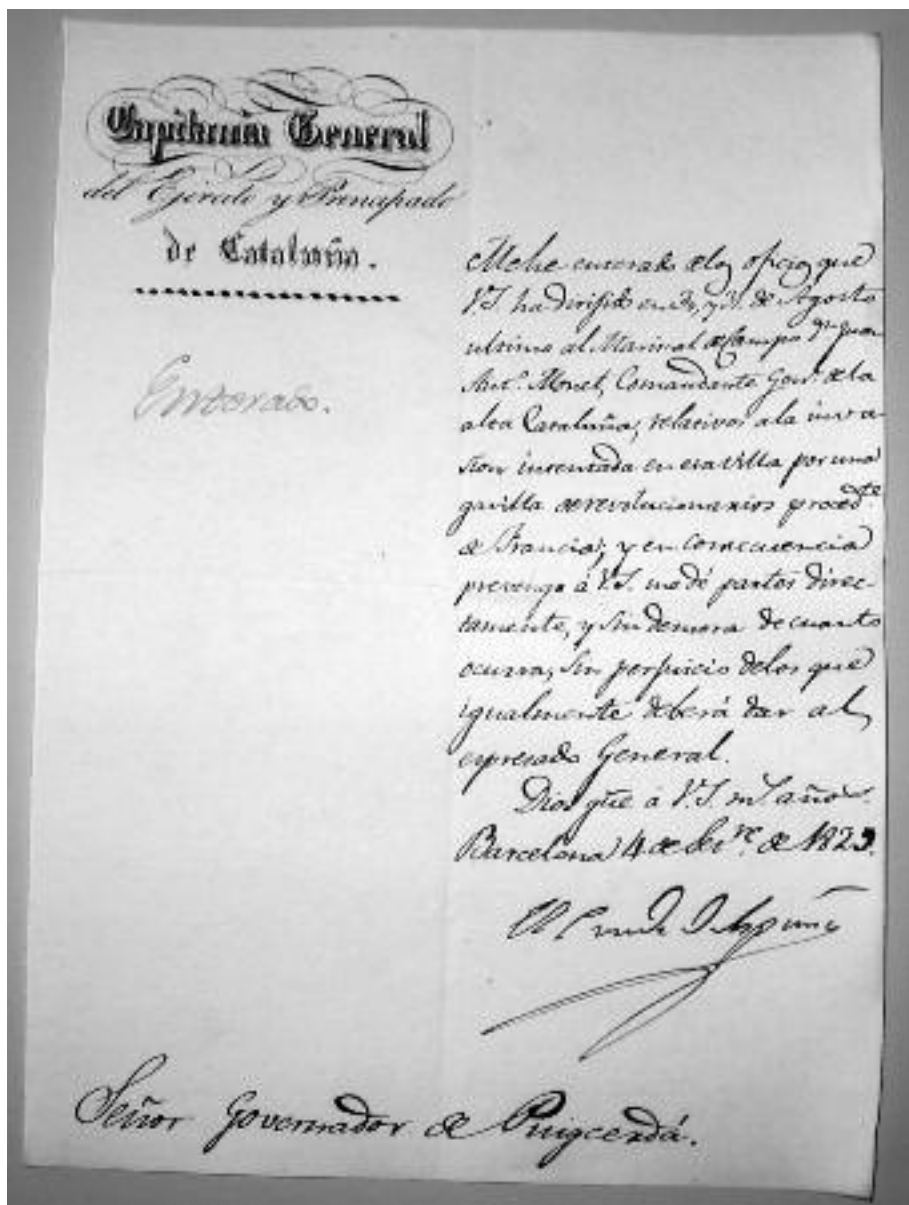 Capitanía General
del Ejército y Principado
de Cataluña.
Enterado.
Mehe enterado delos oficios que
V.S. ha dirijido en y de Agosto
ultimo al Mariscal de Campo Dn. Juan
Antº. Monet, Comandante Genl. dela
alta Cataluña, relativos ala inva-
sion intentada en esa villa por una
gavilla de revolucionarios proced.te
de Francia; y en consecuencia
prevengo á V.S. me dé partes direc-
tamente, y sin demora de cuanto
ocurra, sin perjuicio delos que
igualmente deberá dar al
espresado General.
Dios gũe á V.S. ms. años.
Barcelona 4 de de 1829.
El Conde de España
Señor Governador de Puigcerdá.